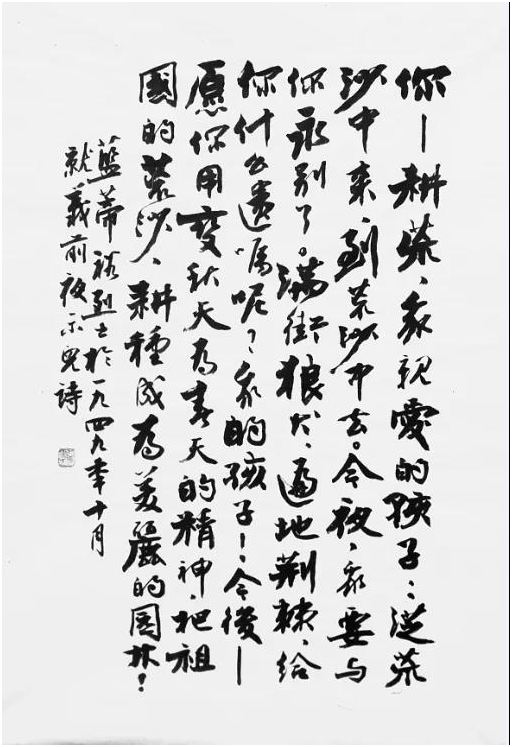 你—耕荒、我親愛的孩子：從荒
沙中来、到荒沙中去。今夜、我要与
你永别了。满街狼犬、遍地荆棘、給
你什么遺嘱呢？我的孩子！今後—
愿你用变秋天为春天的精神、把祖
國的荒沙、耕種成为美麗的园林！
藍蒂裕烈士於一九四九年十月
就義前夜示兒詩